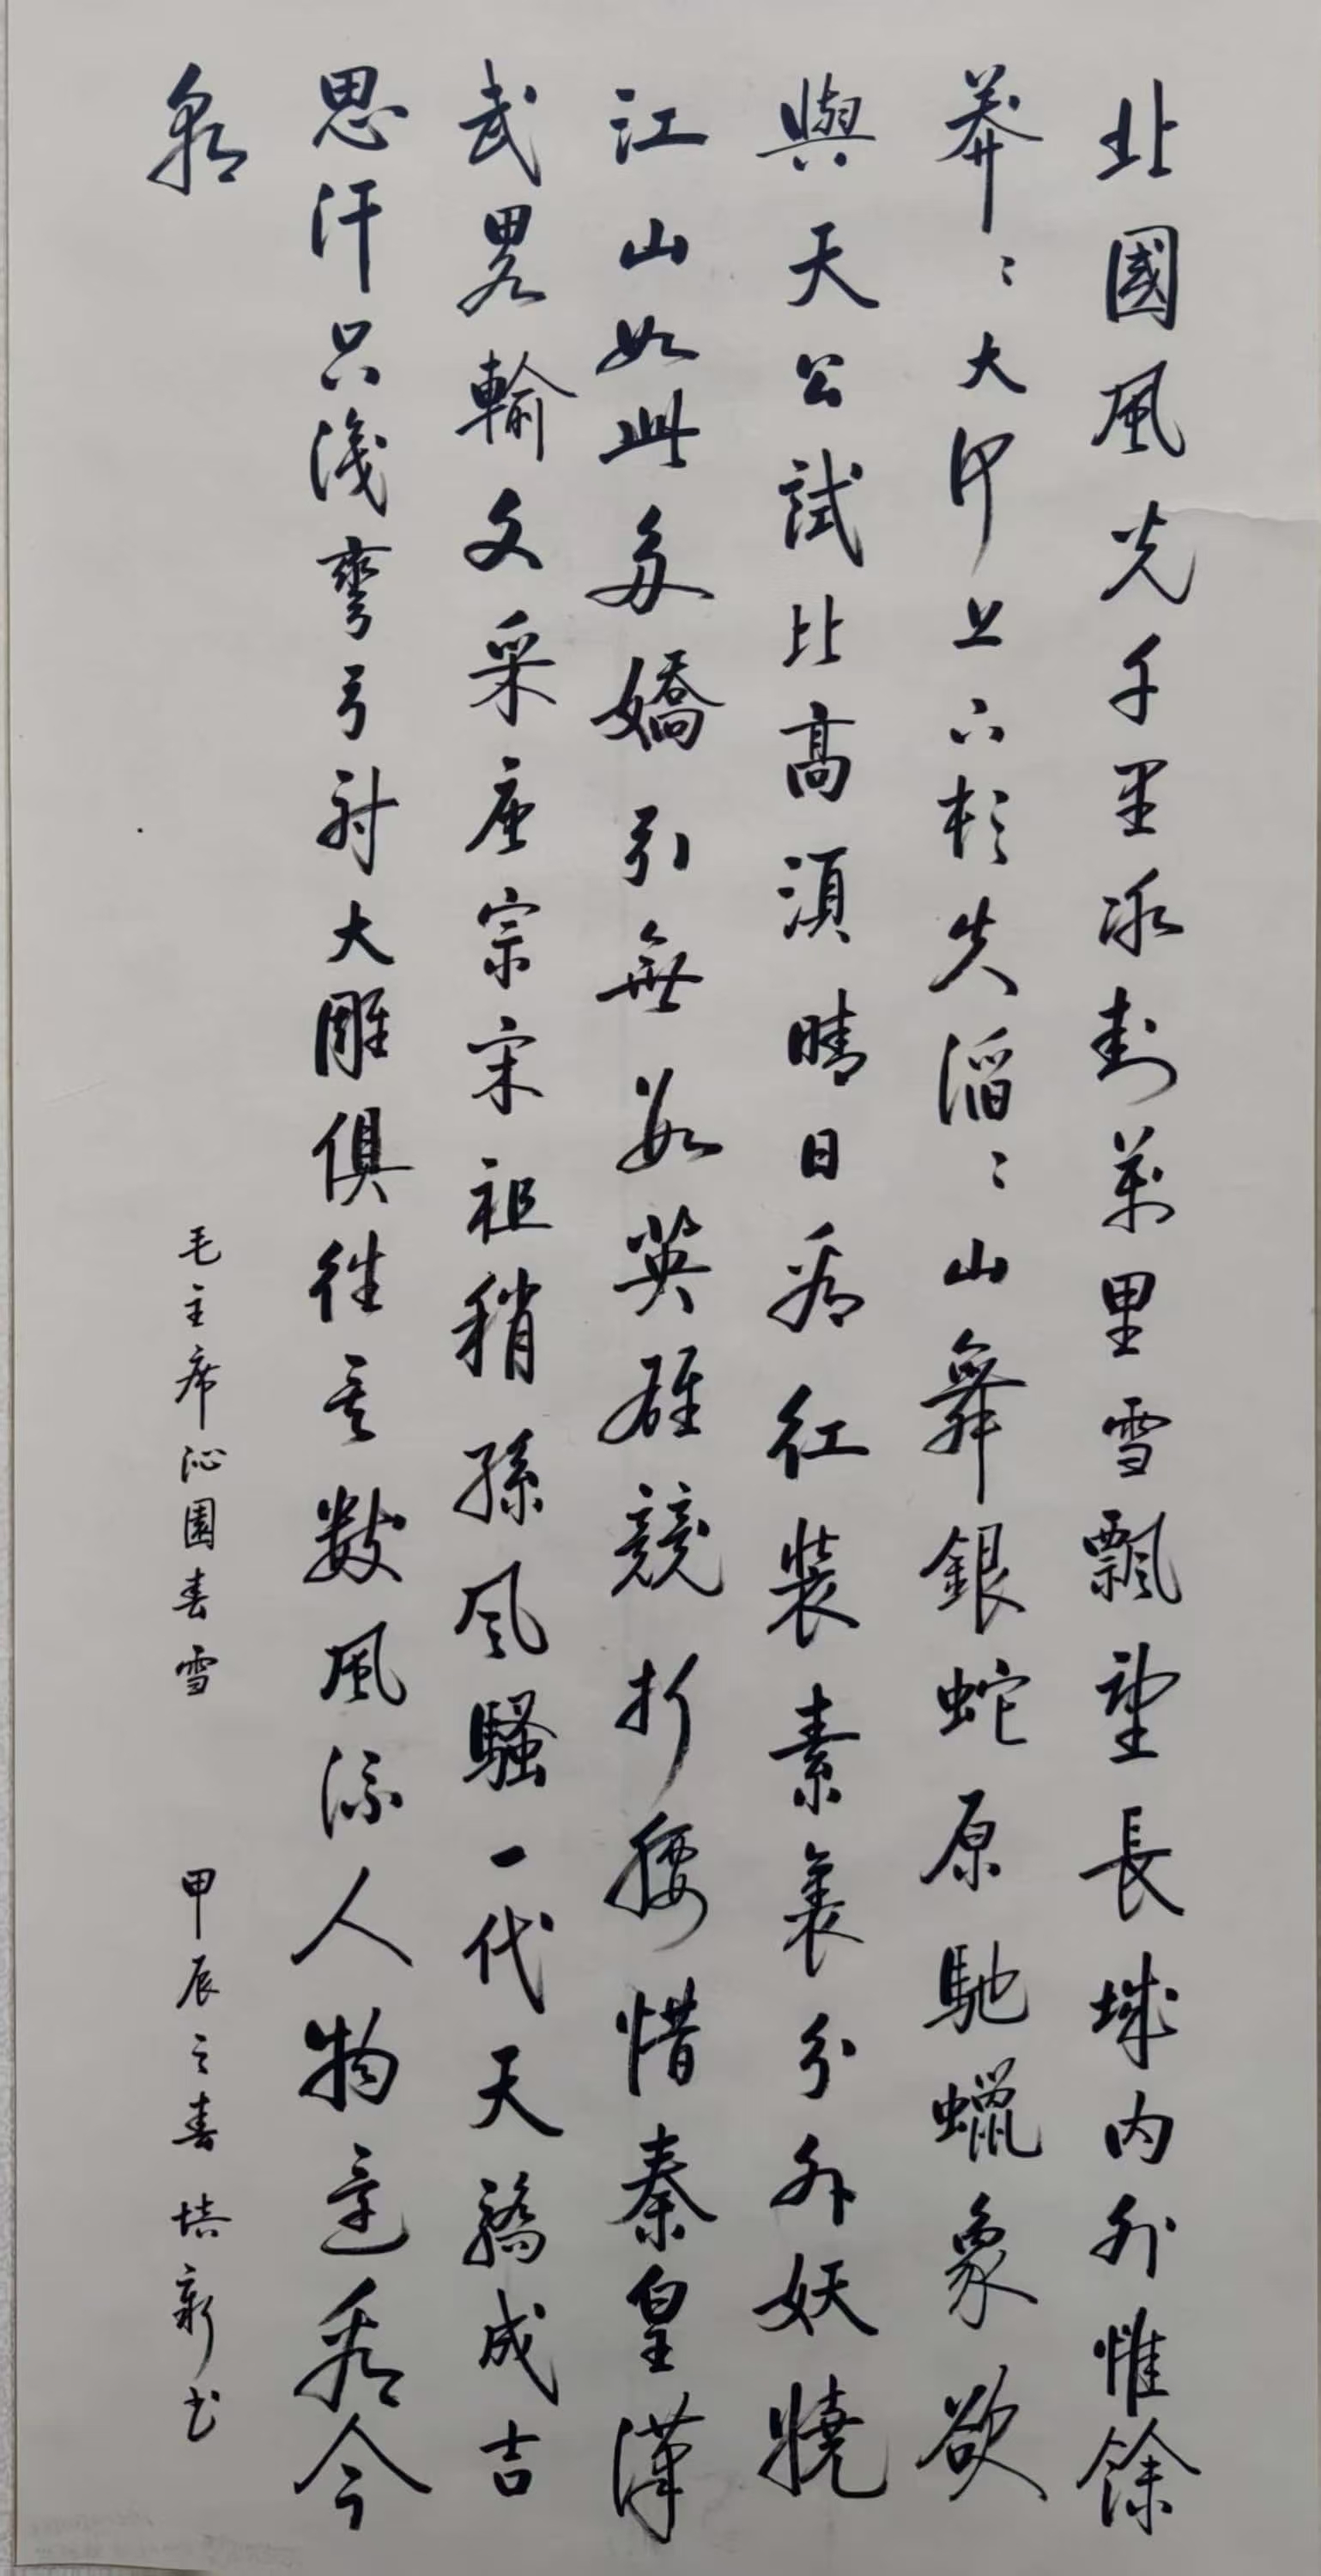 北國風光千里冰封萬里雪飄望長城內外惟餘
莽〻大河上下頓失滔〻山舞銀蛇原馳蠟象欲
與天公試比高須晴日看紅裝素裹分外妖嬈
江山如此多嬌引無數英雄競折腰惜秦皇漢
武畧輸文采唐宗宋祖稍遜風騷一代天驕成吉
思汗只識彎弓射大雕俱往矣數風流人物還看今
朝
毛主席沁園春雪
甲辰之春 培新書